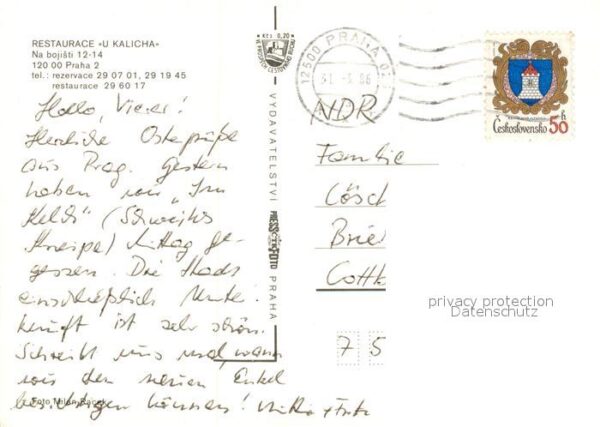 RESTAURACE »U KALICHA«
Na bojišti 12-14
120 00 Praha 2
tel.: rezervace 29 07 01, 29 19 45
restaurace 29 60 17
Hallo,
Herzliche Ostergrüße
aus Prag. Gestern
haben wir "Im
Kelch" (Schwejks
Kneipe) Mittag ge-
gessen. Die Stadt
einschließlich Unter-
kunft ist sehr schön.
Schreibt uns mal, wann
wir den neuen Enkel
besichtigen können!
Foto Milan
Kčs 0,20
VYDAVATELSTVÍ PRESSFOTO PRAHA
12500 PRAHA 02
Československo 50 h
NDR
Familie
Lösch
Brie
Cottb
75
privacy protection
Datenschutz